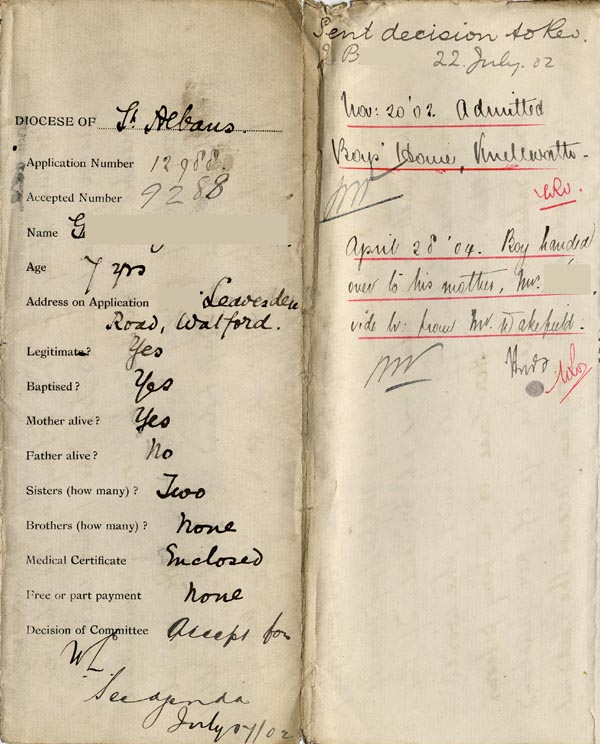 DIOCESE OF St Albans.
Application Number 12988.
Accepted Number 9288
Name G
Age 7 yrs
Address on Application Leavesden
Road, Watford.
Legitimate? Yes
Baptised? Yes
Mother alive? Yes
Father alive? No
Sisters (how many)? Two
Brothers (how many)? None
Medical Certificate Enclosed
Free or part payment None
Decision of Committee Accept for
WL
See agenda
July 17/02
Sent decision to Rev.
B
22. July. 02
Nov: 20 '02. Admitted
Boys' Home, Knebworth.
April 28 '04. Boy handed
over to his mother, Mrs.
vide lr: from Mr. Wakefield.